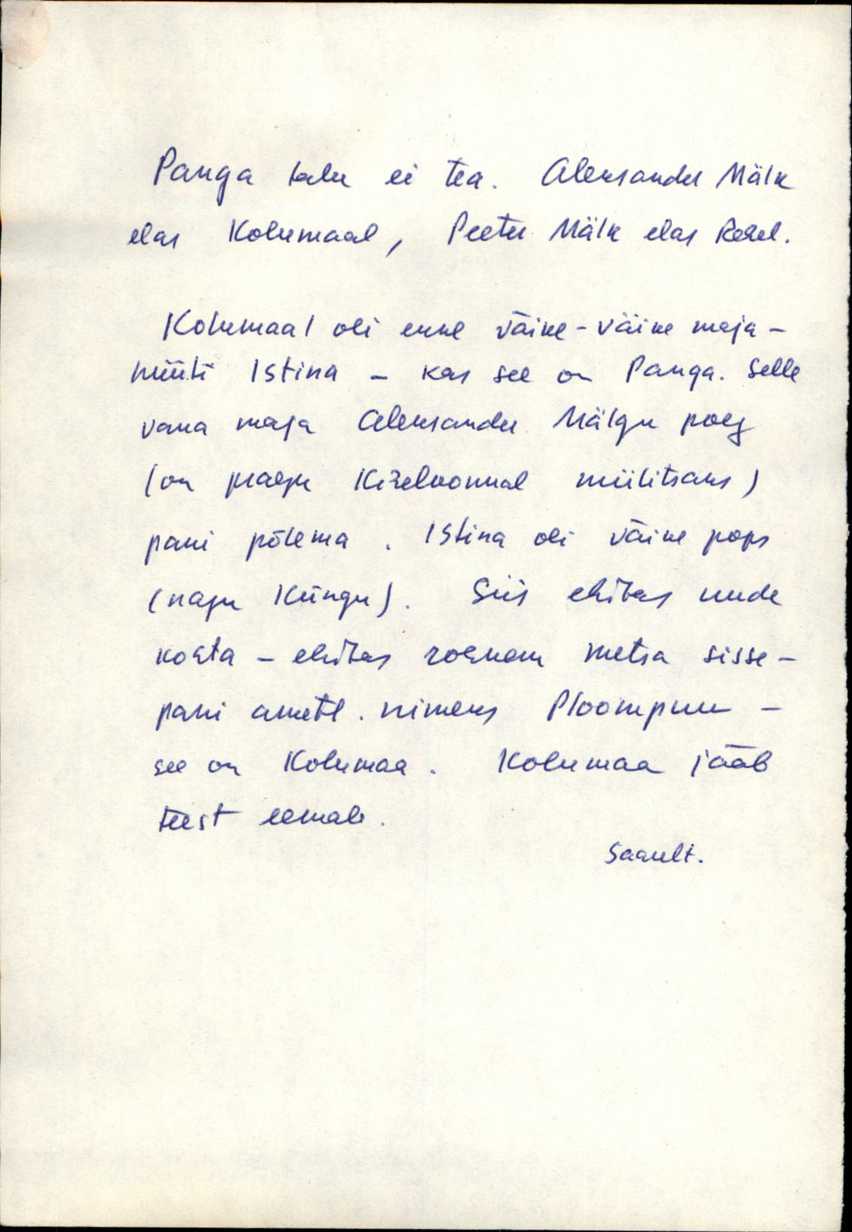 Panga talu ei tea. Aleksander Mälk
elas Kolumaal, Peeter Mälk elas
Kolumaal oli enne väike-väike maja -
hüüti Istina - kas see on Panga. Selle
vana maja Aleksander Mälgu poeg
(on praegu miilitsaks)
pani põlema. Istina oli väike pops
(nagu Küngu). Siis ehitas uude
kohta - ehitas rohkem metsa sisse -
pani ametl. nimeks Ploompuu -
see on Kolumaa. Kolumaa jääb
teest eemale.